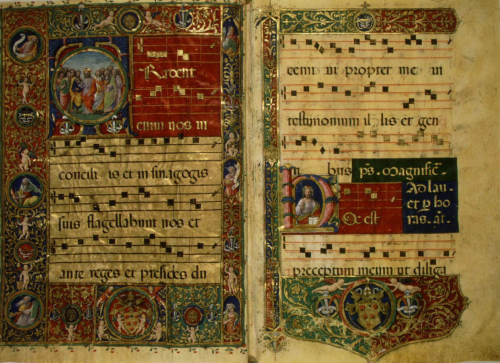 TRadent
enim uos in
conciliis et in sinagogis
suis flagellabunt uos et
ante reges et presides du
cemini propter me in
testimonium il lis et gen
ti bus ps. Magnific̄.
Ad lau
et p ho
ras. añ.
HOc est
preceptum meum ut diliga